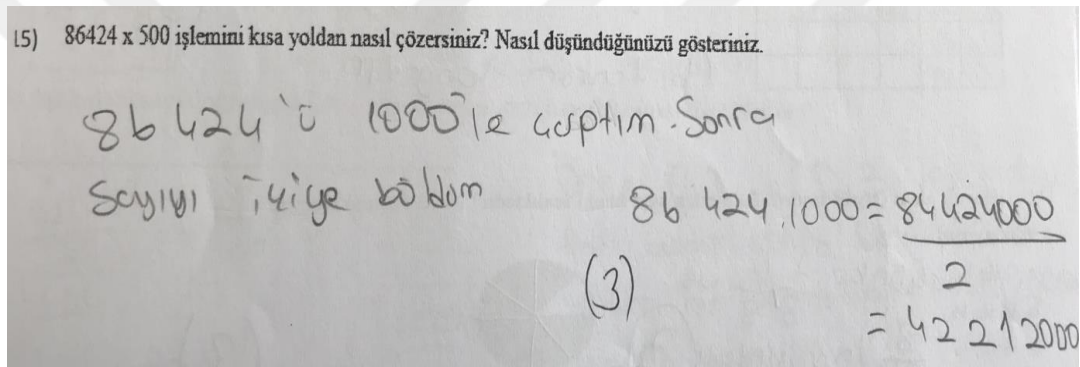 15) 86424 x 500 işlemini kısa yoldan nasıl çözersiniz? Nasıl düşündüğünüzü gösteriniz.
86 424'ü 1000'le çarptım. Sonra
Sayıyı ikiye böldüm
86 424.1000 = 84424000
2
(3)
= 42212000